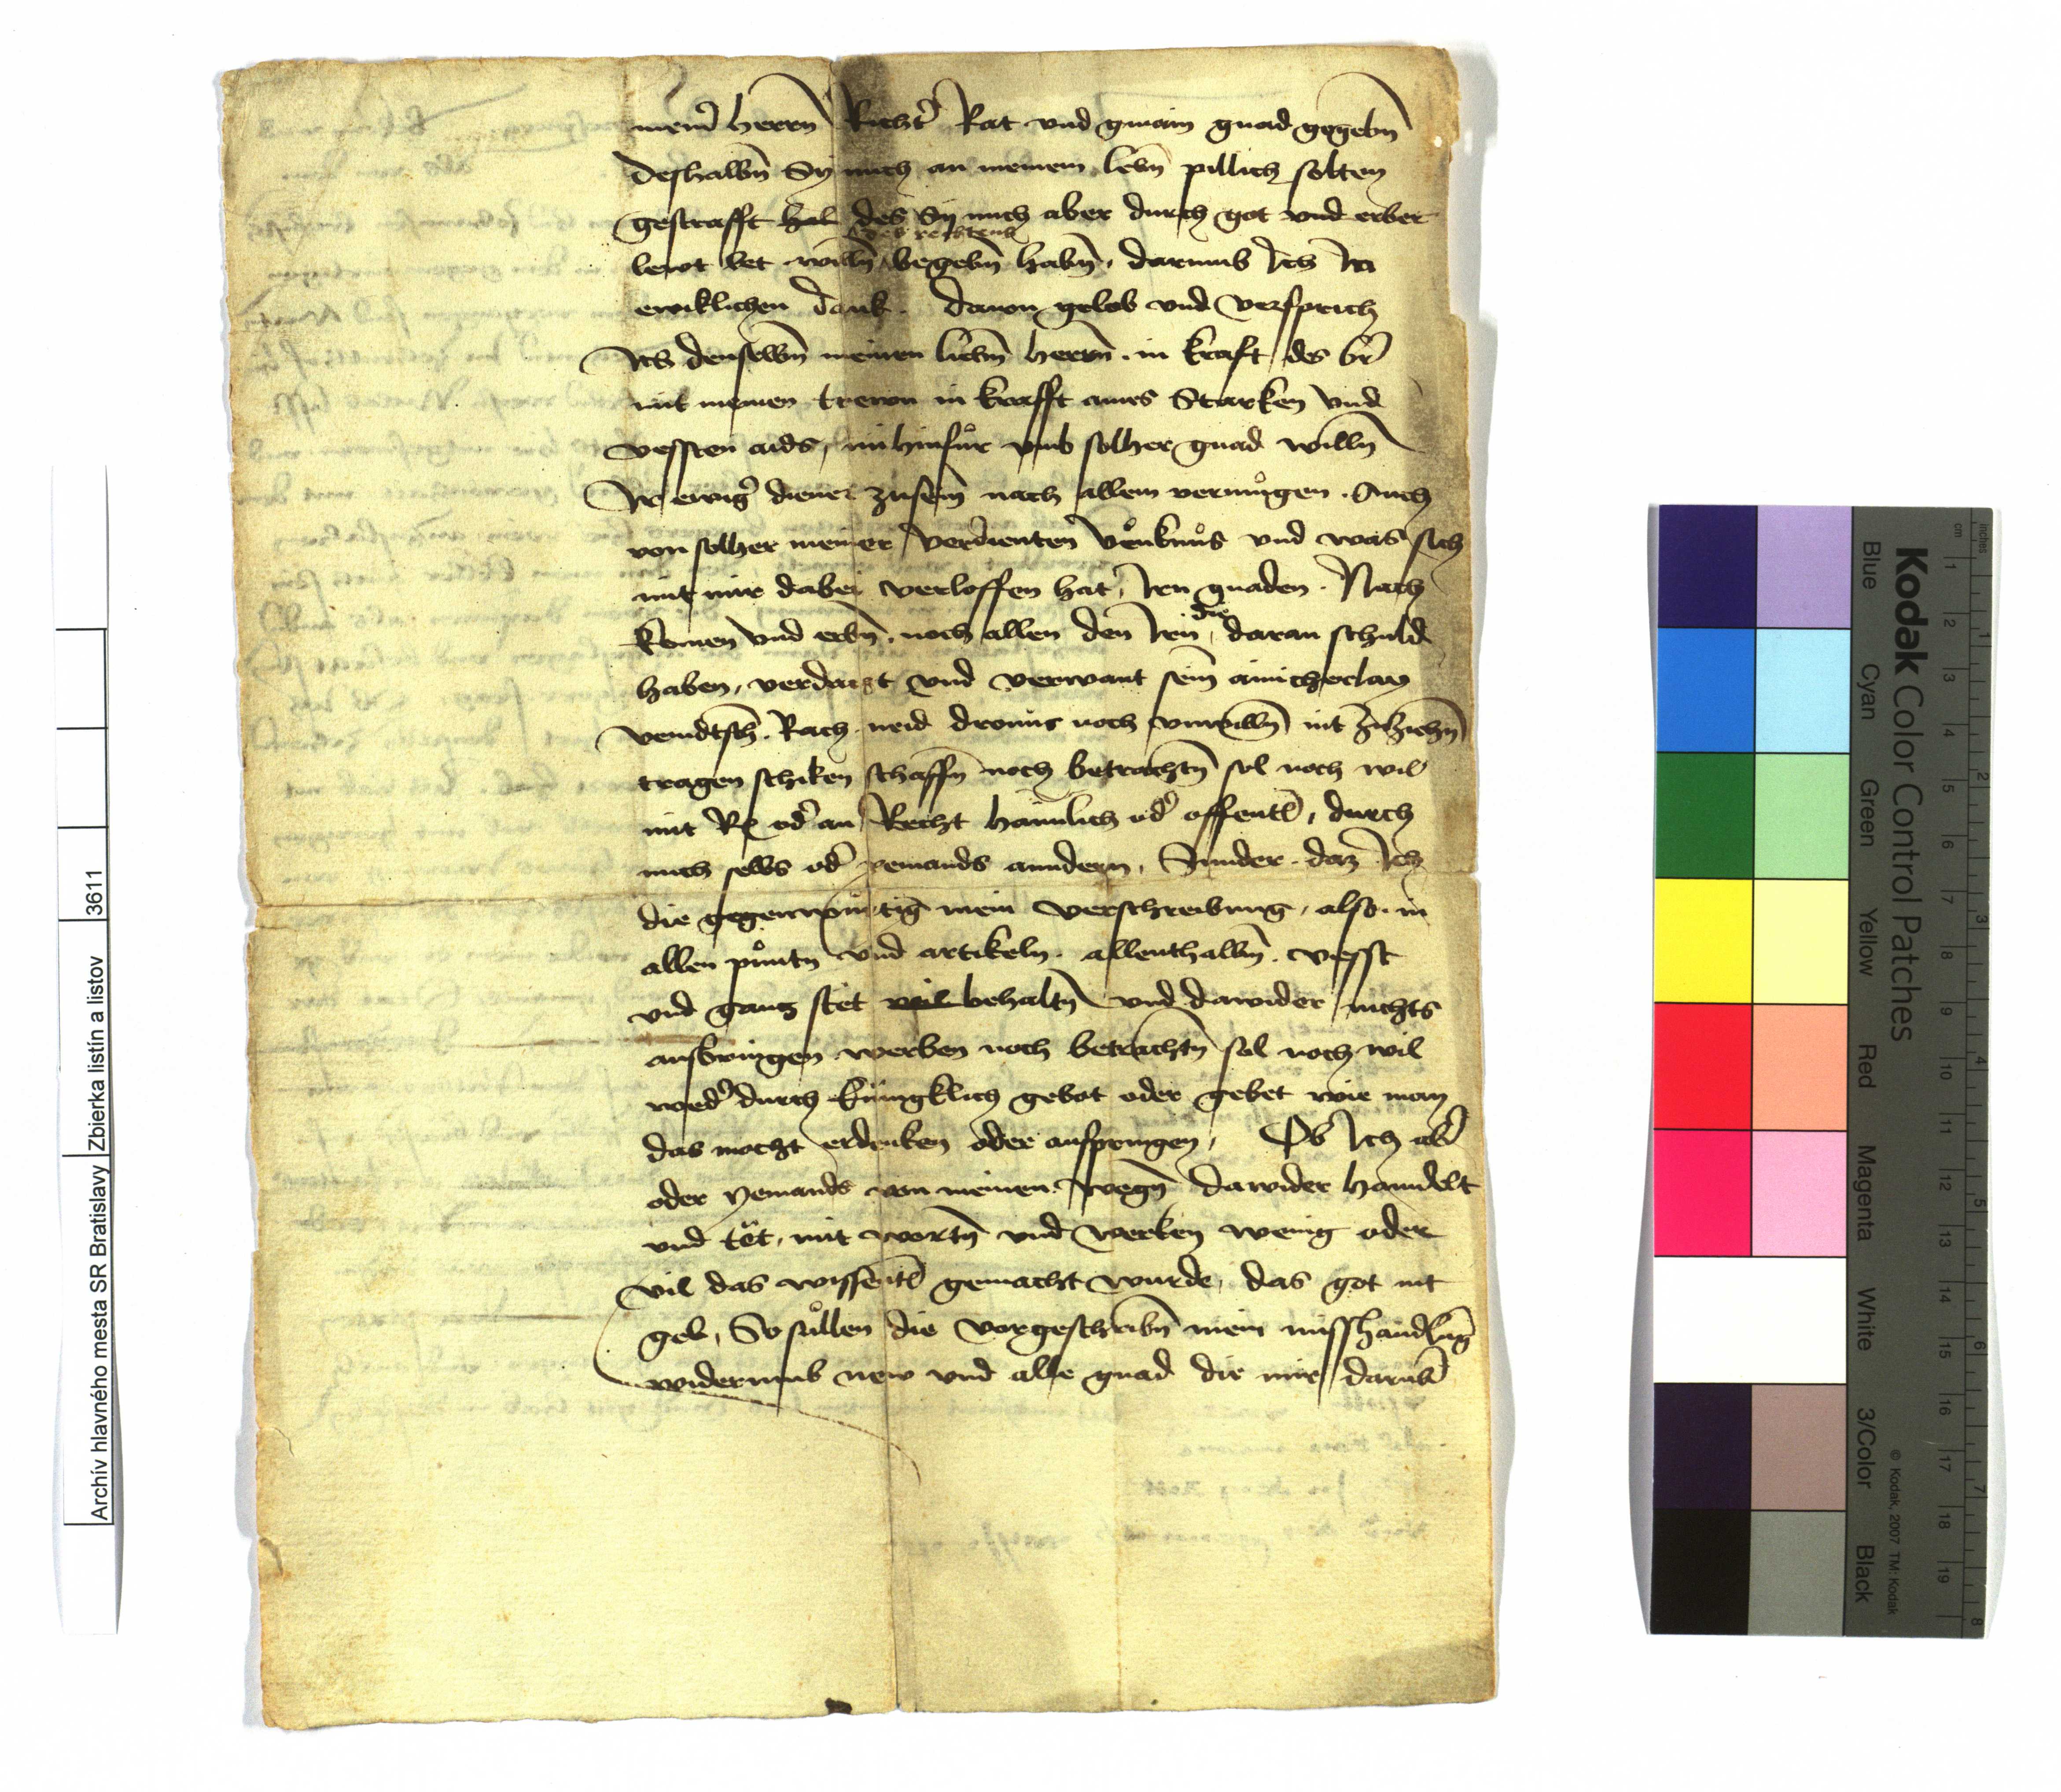 meinẽ herrñ Richtẽ Rat vnd gmain gnad gegebñ
deshalbñ Sy mich an meinem lebñ pillich solten
gestrafft hal des Sy mich aber durch got vnd erber
des rechtens
lewt bet willñ begebñ habñ, darumb Ich In
ewiklichen dank. dauon gelob vnd versprich
Ich denselbñ meinen liebñ herrñ. in kraft des br̃
mit meinen trewn in krafft aines Starken vnd
vessten aids, nu hinfůr vmb solher gnad willñ
Ir ewigẽ diener zusein nach allem vermůgen. Auch
von solher meiner verdienten vẽnknůs vnd was sich
mit mir dabei verloffen hat, Iren gnaden. Nach
die
komen vnd erbñ, noch allen den Iren, daran schuld
haben, verdacht vnd verwant sein ainicherlay
veindtsch. Rach neid dronus noch vnwillñ nit zuziehñ
tragen schiken schaffñ noch betrachtñ sol noch wil
mit Re odẽ an Recht haimlich odẽ offentl, durch
mich selbs odẽ yemands anndern, Sunder. daz Ich
die gegenwũrtig mein verschreibung, also in
allen půntñ vnd artikeln. allenthalbñ. vesst
vnd gantz stet wil behaltñ vnd dawider nichts
ausbringen werben noch betrachtñ sol noch wil
wedẽ durch künigklich gebot oder gebet wie man
das mocht erdenken oder auspringen, Ob Ich abẽ
oder yemands von meinen wegñ dawider hanndelt
vnd tët, mit wortñ vnd werken wenig oder
vil das wissentl gemacht wurde, das got nit
geb, So sůllen die vorgeschribñ mein misshandlũg
widerumb new vnd alle gnad die mir darubẽ
Archív hlavného mesta SR Bratislavy
Zbierka listín a listov
3611
Kodak Color Control Patches
Blue Cyan Green Yellow Red Magenta White 3/Color Black
© Kodak, 2007 TM: Kodak
cm 1 2 3 4 5 6 7 8 9 10 11 12 13 14 15 16 17 18 19
inches 1 2 3 4 5 6 7 8